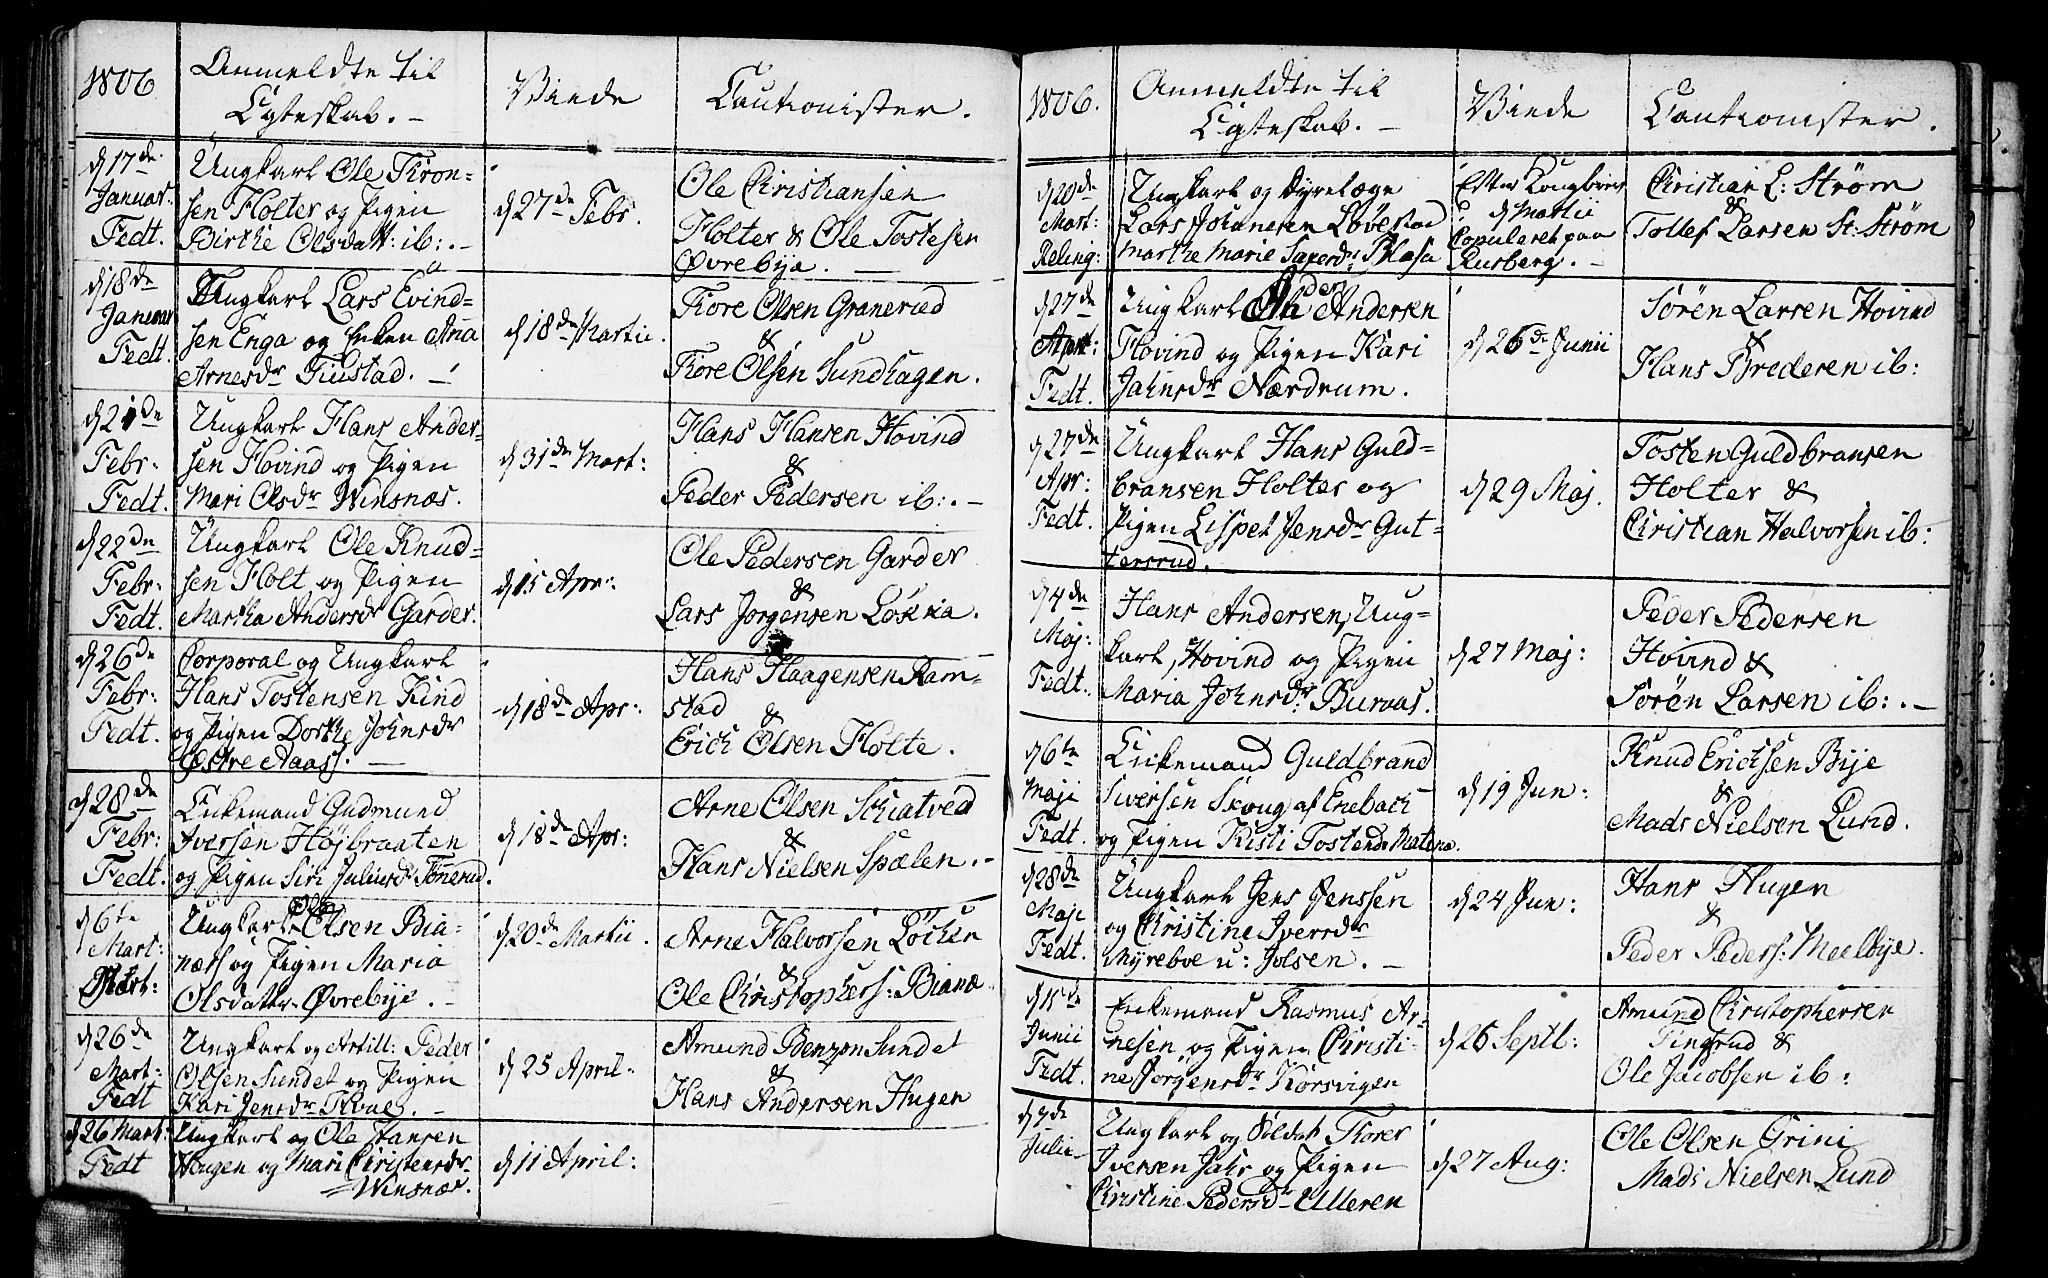 1806
Anmeldte til
Egteskab. -
Viede
Cautionister.
d 17de
Januar.
Fedt.
Ungkarl Ole Thron-
sen Holter og Pigen
Birthe Olsdatt: ib: . -
d 27de Febr.
Ole Christiansen
Holter & Ole Tostesen
Øvrebye. -
d 18de
Januar
Fedt.
Ungkarl Lars Evind-
sen Enga og Enken Ana
Arnesdr Fiustad. -
d 18de Martii.
Thore Olsen Graneried
&
Thore Olsen Sundhagen.
d 21de
Febr:
Fedt.
Ungkarl Hans Ander-
sen Hovind og Pigen
Mari Olsdr Winsnæs.
d 31de Mart:
Hans Hansen Hovind
&
Peder Pedersen ib: . -
d 22de
Febr:
Fedt.
Ungkarl Ole Knud-
sen Holt og Pigen
Martha Andersdr Garder.
d 15 Apr:
Ole Pedersen Garder
&
Lars Jorgensen Løkka.
d 26de
Febr:
Fedt.
Corporal og Ungkarl
Hans Tostensen Kind
og Pigen Dorthe Johnsdr
Østre Aass. -
d 18de Apr:
Hans Haagensen Ram-
stad
&
Erich Olsen Holte.
d 28de
Febr:
Fedt.
Enkemand Gudmund
Iversen Højbraaten
og Pigen Siri Juliusdr Tonerud.
d 18de Apr:
Arne Olsen Schiatved
&
Hans Nielsen Spælen. -
d 6te
Mart:
Ungkarl Ole Olsen Bia-
næss og Pigen Maria
Olsdatter Øvrebye. -
d 20de Martii.
Arne Halvorsen Løchen
&
Ole Christophers: Bianæ
d 26de
Mart:
Fedt
Ungkarl og Artill: Peder
Olsen Sundet og Pigen
Kari Jensdr Thoue. -
d 25 April:
Amund Benzon Sundet
&
Hans Andersen Hugen
d 26 Mart:
Fedt
Ungkarl og Ole Hansen
Haugen og Mari Christensdr
Winsnæs.
d 11 April:
1806.
Anmeldte til
Egteskab. -
Viede
Cautionister.
d 20de
Mart:
Reling:
Ungkarl og Dyrelæge
Lars Johannesen Løvestad
Marthe Marie Saxesdr Plasa
Efter Kongbrev
d Martii
Copuleret paa
Rusberg. -
Christian L: Strøm
&
Tollef Larsen St: Strøm
d 27de
Apr:
Fedt.
Ungkarl Peder Andersen
Hovind og Pigen Kari
Jahnsdr Nærdrum.
d 26de Junii
Sørën Larsen Hovind
&
Hans Bredesen ib:
d 27de
Apr:
Fedt.
Ungkarl Hans Guld-
bransen Holter og
Pigen Lispet Jensdr Gut-
tersrud.
d 29 Maj.
Tosten Guldbransen
Holter &
Christian Halvorsen ib:
d 4de
Maj:
Fedt.
Hans Andersen, Ung-
karl, Hovind og Pigen
Maria Johnsdr Buraas.
d 27 Maj:
Peder Pedersen
Hovind &
Sørën Larsen ib: . -
d 6te
Maji
Fedt.
Enkemand Guldbrand
Siversen Skoug af Enebach
og Pigen Kisti Tostensdr Matena.
d 19 Jun:
Knud Erichsen Bije
&
Mads Nielsen Lund.
d 28de
Maji
Fedt.
Ungkarl Jens Jenssen
og Christine Iversdr
Myreboe u: Jolsen. -
d 24 Jun:
Hans Hugen
&
Peder Peders: Meelbye.
d 15de
Junii
Fedt.
Enkemand Rasmus Ar-
nesen og Pigen Christi-
ne Jørgensdr Korsvigen
d 26 Septl:
Amund Christophersen
Tingrud &
Ole Jacobsen ib:
d 7de
Julii
Ungkarl og Soldat Thorer
Iversen Jahr og Pigen
Christine Pedersdr Ulleren
d 27 Aug:
Ole Olsen Grini
Mads Nielsen Lund